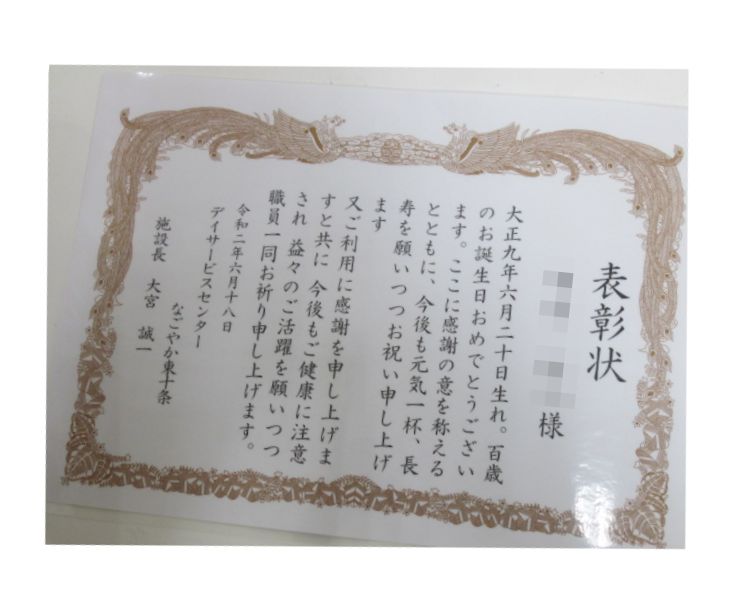 表彰状
様
大正九年六月二十日生れ。百歳
のお誕生日おめでとうござい
ます。ここに感謝の意を称える
とともに、今後も元気一杯、長
寿を願いつつお祝い申し上げ
ます
又ご利用に感謝を申し上げま
すと共に 今後もご健康に注意
され 益々のご活躍を願いつつ
職員一同お祈り申し上げます。
令和二年六月十八日
デイサービスセンター
なごやか東十条
施設長 大宮 誠一